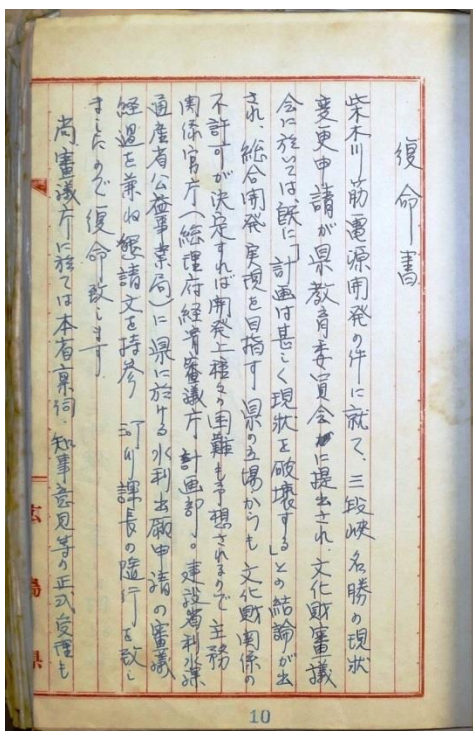 復命書
柴木川筋電源開発の件に就て、三段峡名勝の現状
変更申請が県教育委員会に提出され、文化財審議
会に於いては、既に「計画は甚しく現状を破壊する」との結論が出
され、総合開発実現を目指す県の立場からも文化財関係の
不許可が決定すれば開発上種々の困難も予想されるので主務
関係官庁(総理府経済審議庁計画部。建設省利水課
通産省公益事業局)に県に於ける水利出願申請の審議
経過を兼ね懇請文を持参 河川課長の随行を致し
ましたので復命致します
尚審議庁に於ては本省稟伺、知事意見等の正式受理も
広島県
10